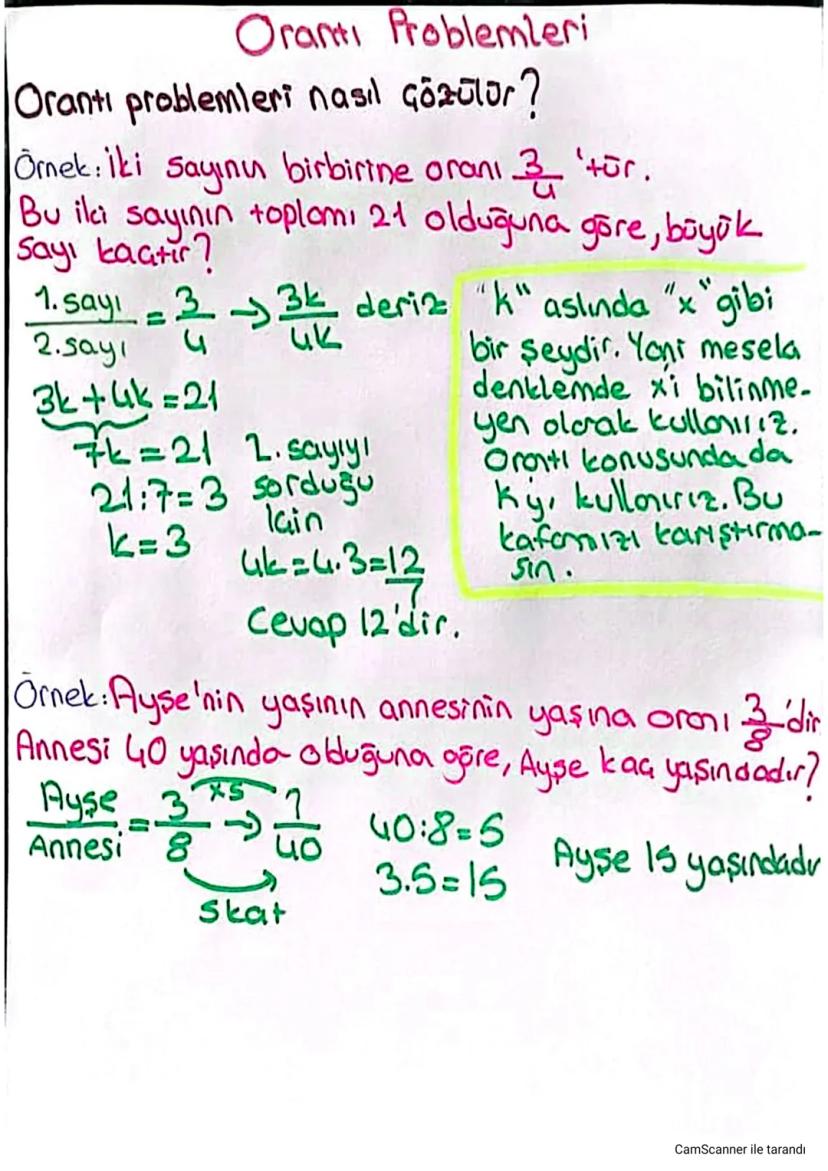 Orantı Problemleri
Orantı problemleri nasıl çözülür?
Örnek: İki sayının birbirine oranı 3/4 'tür.
Bu iki sayının toplamı 21 olduğuna göre, büyük
sayı kaçtır?
1. sayı / 2. sayı = 3/4 → 3k/4k deriz
3k + 4k = 21
7k = 21
21:7=3
k=3
2. sayıyı
sorduğu
için
4k = 4.3 = 12
Cevap 12'dir.
"k" aslında "x" gibi
bir şeydir. Yani mesela
denklemde x'i bilinme-
yen olarak kullanırız.
Orantı konusunda da
k'yı kullanırız. Bu
kafamızı karıştırma-
sın.
Örnek: Ayşe'nin yaşının annesinin yaşına oranı 3/8'dir
Annesi 40 yaşında olduğuna göre, Ayşe kaç yaşındadır?
Ayşe / Annesi = 3/8 → ?/40
x5
5 kat
40:8=5
3.5=15
Ayşe 15 yaşındadır
CamScanner ile tarandı